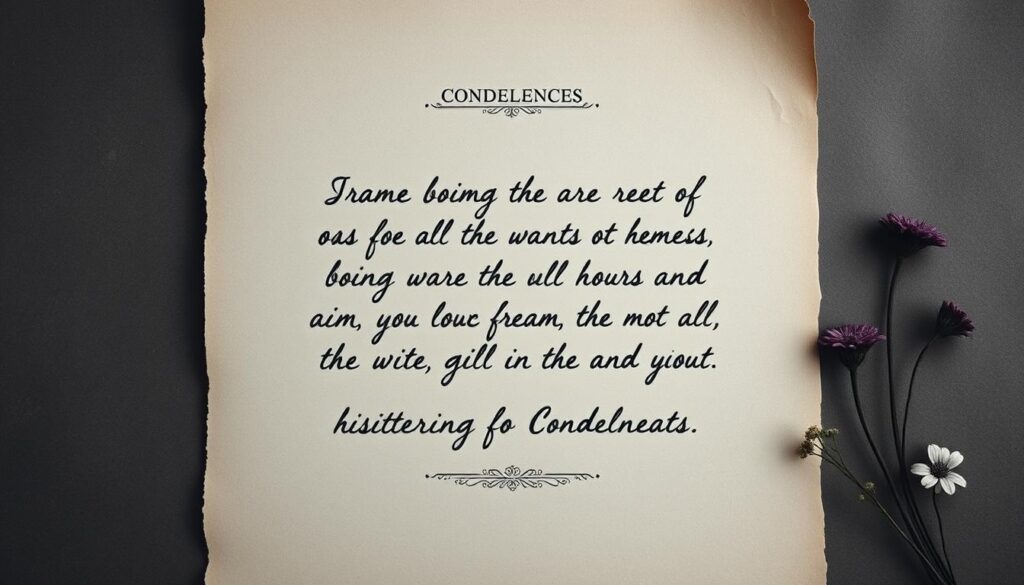 CONDELENCES
Irame boimg the are reet of
oas foe all the wants ot hemess,
boing ware the ull hours and
aim, you louc fream, the mot all,
the wite, gill in the and yiout.
hisittering fo Condelneats.